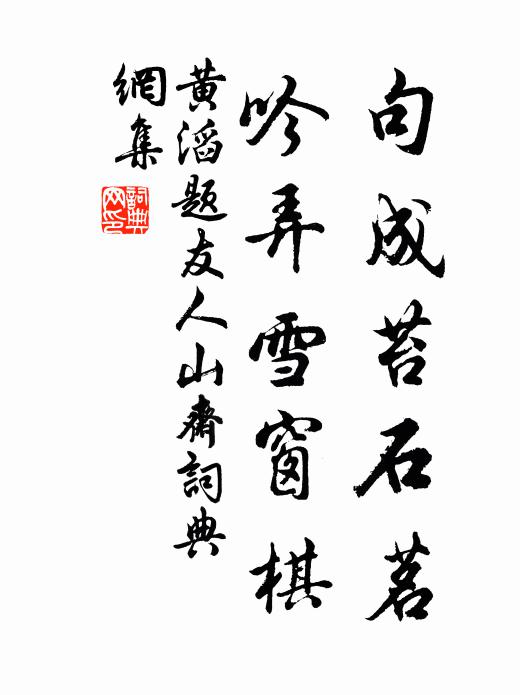 句成苔石茗
吟弄雪窗棋
黄滔题友人山齋詞典
網集
詞典網印